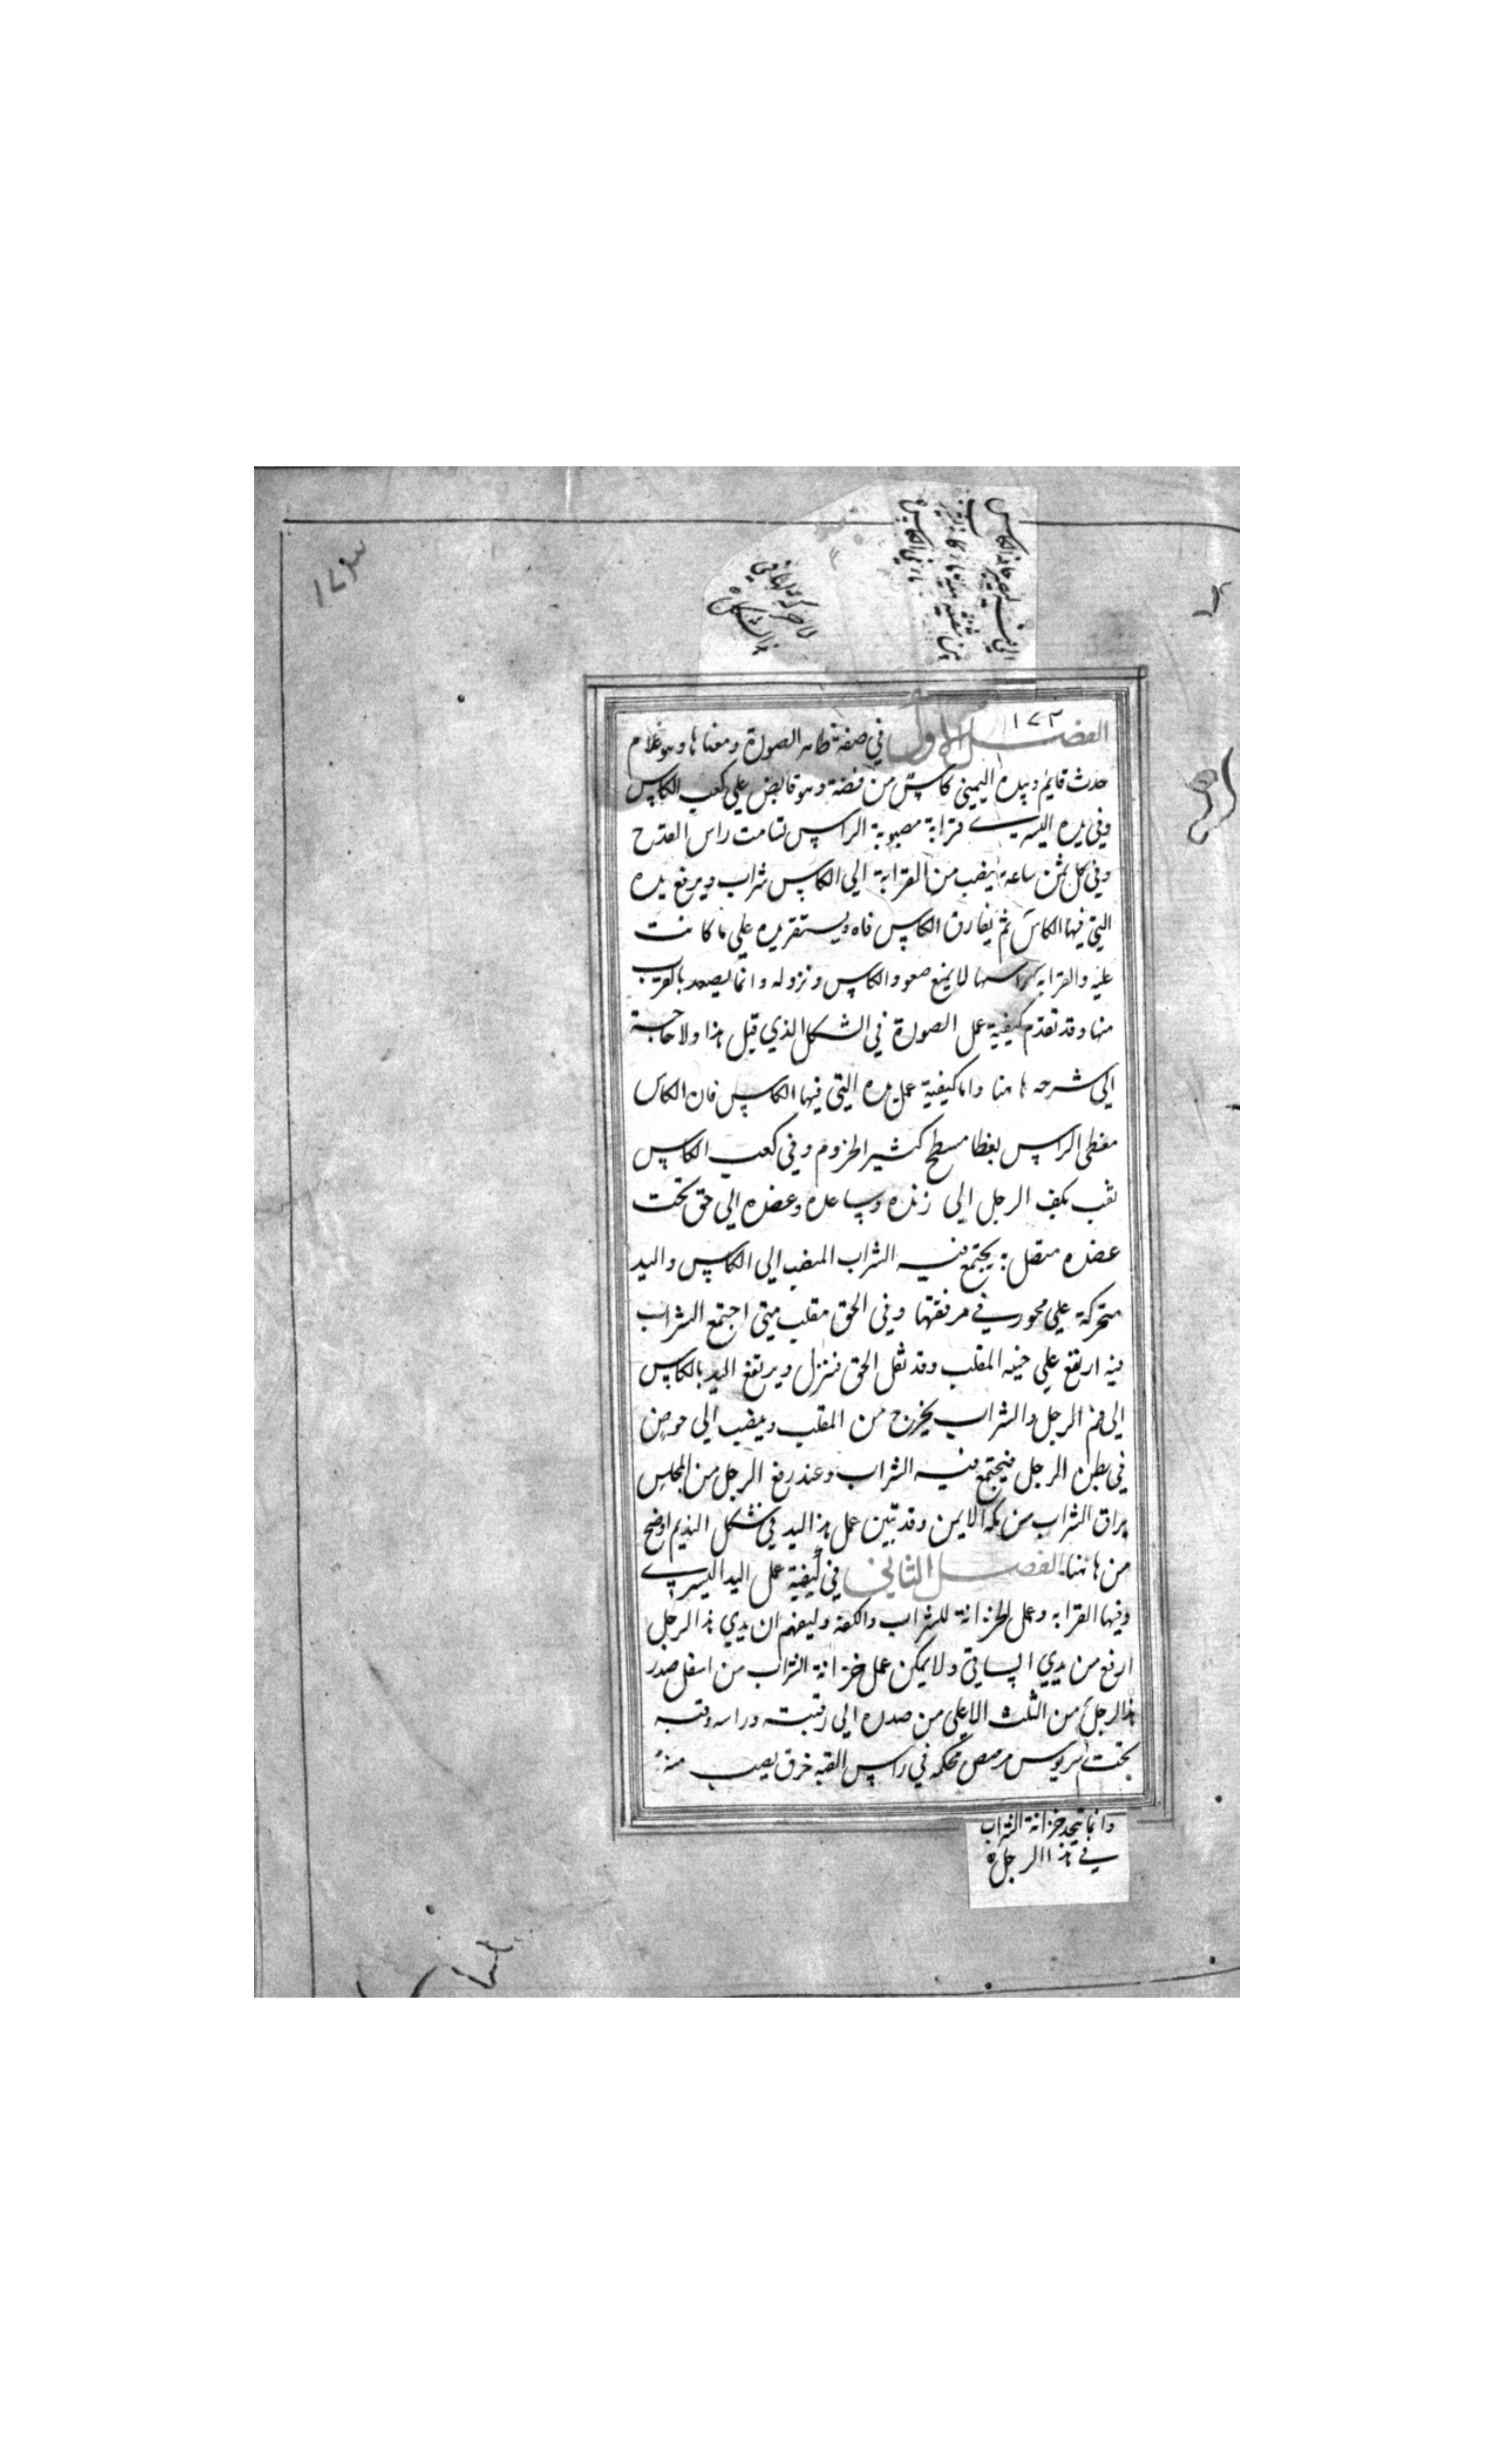 ١٧٣
١٧٣
الفصل الاول في صفة ظاهر الصورة ومعناها وهو غلام
حدث قايم وبيده اليمني كاس من فضة وهو قابض علي كعب الكاس
وفي يده اليسرے قرابة مصبوبة الراس تسامت راس القدح
وفي كل ثمن ساعة ينصب من القرابة الي الكاس شراب ويرفع يده
التي فيها الكاس ثم يفارق الكاس فاه ويستقر يده علي ما كانت
عليه والقرابه راسها لا يمنع صعود الكاس ونزوله وانما يصعد بالقرب
منها وقد تقدم كيفية عمل الصورة في الشكل الذي قبل هذا ولا حاجة
الي شرحه هاهنا واما كيفية عمل يده التي فيها الكاس فان الكاس
مغطي الراس بغطا مسطح كثير الخروم وفي كعب الكاس
ثقب بكف الرجل الي زنده وساعده وعضده الي حق تحت
عضده متصل به يجتمع فيه الشراب المنصب الي الكاس واليد
متحركة علي محور في مرفقها وفي الحق مقلب متي اجتمع الشراب
فيه ارتفع علي المقلب وقد ثقل الحق فنزل ويرتفع اليد بالكاس
الي فم الرجل والشراب يخرج من المقلب وينصب الي حوض
في بطن الرجل فيجتمع فيه الشراب وعند رفع الرجل من المجلس
يراق الشراب من كمه الايمن وقد تبين عمل هذا اليد في شكل النديم اوضح
من هاهنا الفصل الثاني في كيفية عمل اليد اليسرے
وفيها القرابه وعمل الخزانة للشراب والكفة وليفهم ان يدي هذا الرجل
ارفع من يدي الساقي ولا يمكن عمل خزانة الشراب من اسفل صدر
هذا الرجل من الثلث الاعلي من صدره الي رقبته وراسه وقبه
تحت محكمه في راس القبه خرق يصب منه
وانما يتخذ خزانة الشراب
في هذا الرجل